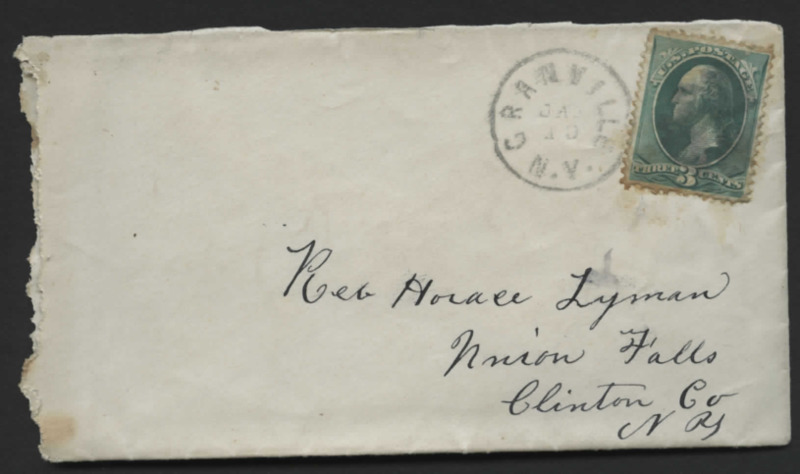 GRANVILLE
JA
10
N.Y.
U.S. POSTAGE
THREE 3 CENTS
Rev Horace Lyman
Union Falls
Clinton Co
N Y